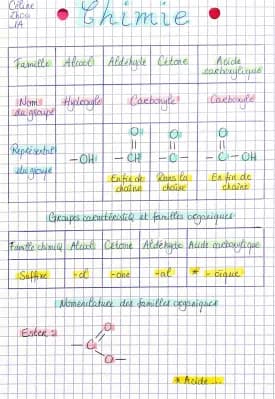 Céline
Zhou
1A
• Chimie •
Famille Alcool Aldéhyde Cétone Acide carboxylique
Nom du groupe Hydroxyle Carbonyle Carboxyle
Représentat° du groupe
O O O
|| || ||
-OH -CH -C- -C-OH
En fin de chaîne Dans la chaîne En fin de chaîne
Groupes caractéristiq et familles organiques
Famille chimiq Alcool Cétone Aldéhyde Acide carboxylique
Suffixe -ol -one -al * -oïque
Nomenclature des familles organiques
Ester :
O
-C
O-
* Acide ...